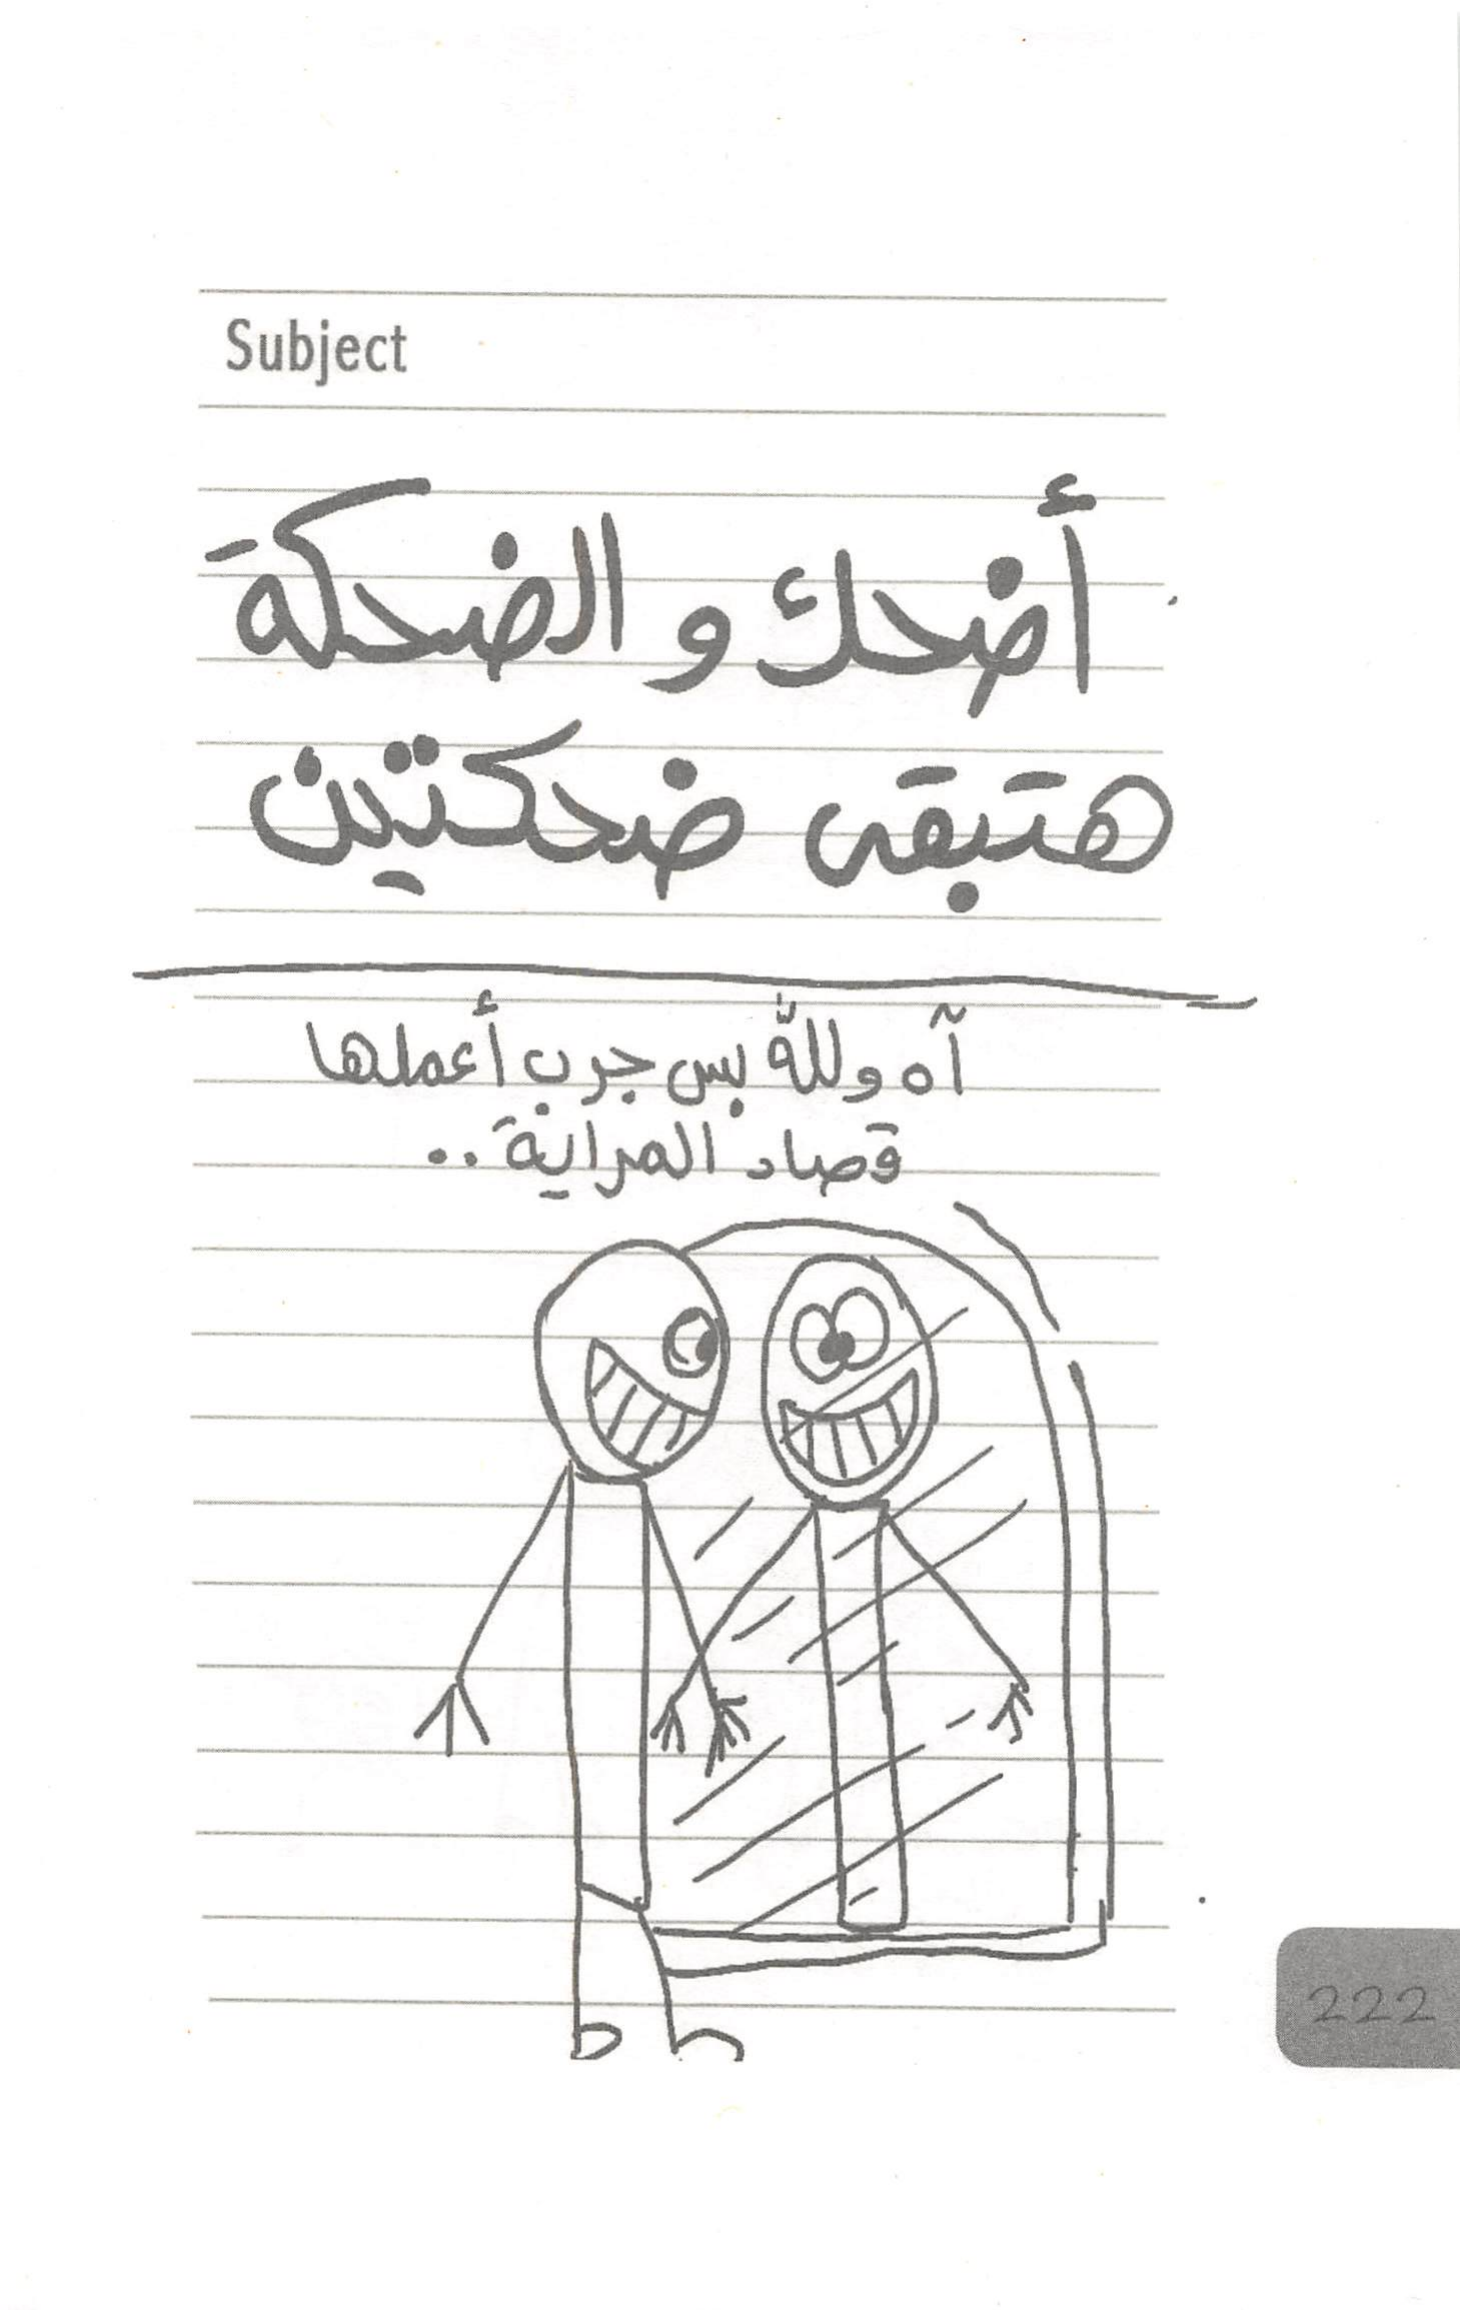 Subject
أضحك و الضحكة
هتبقى ضحكتين
آه وللله بس جرب أعملها
قصاد المراية..
222